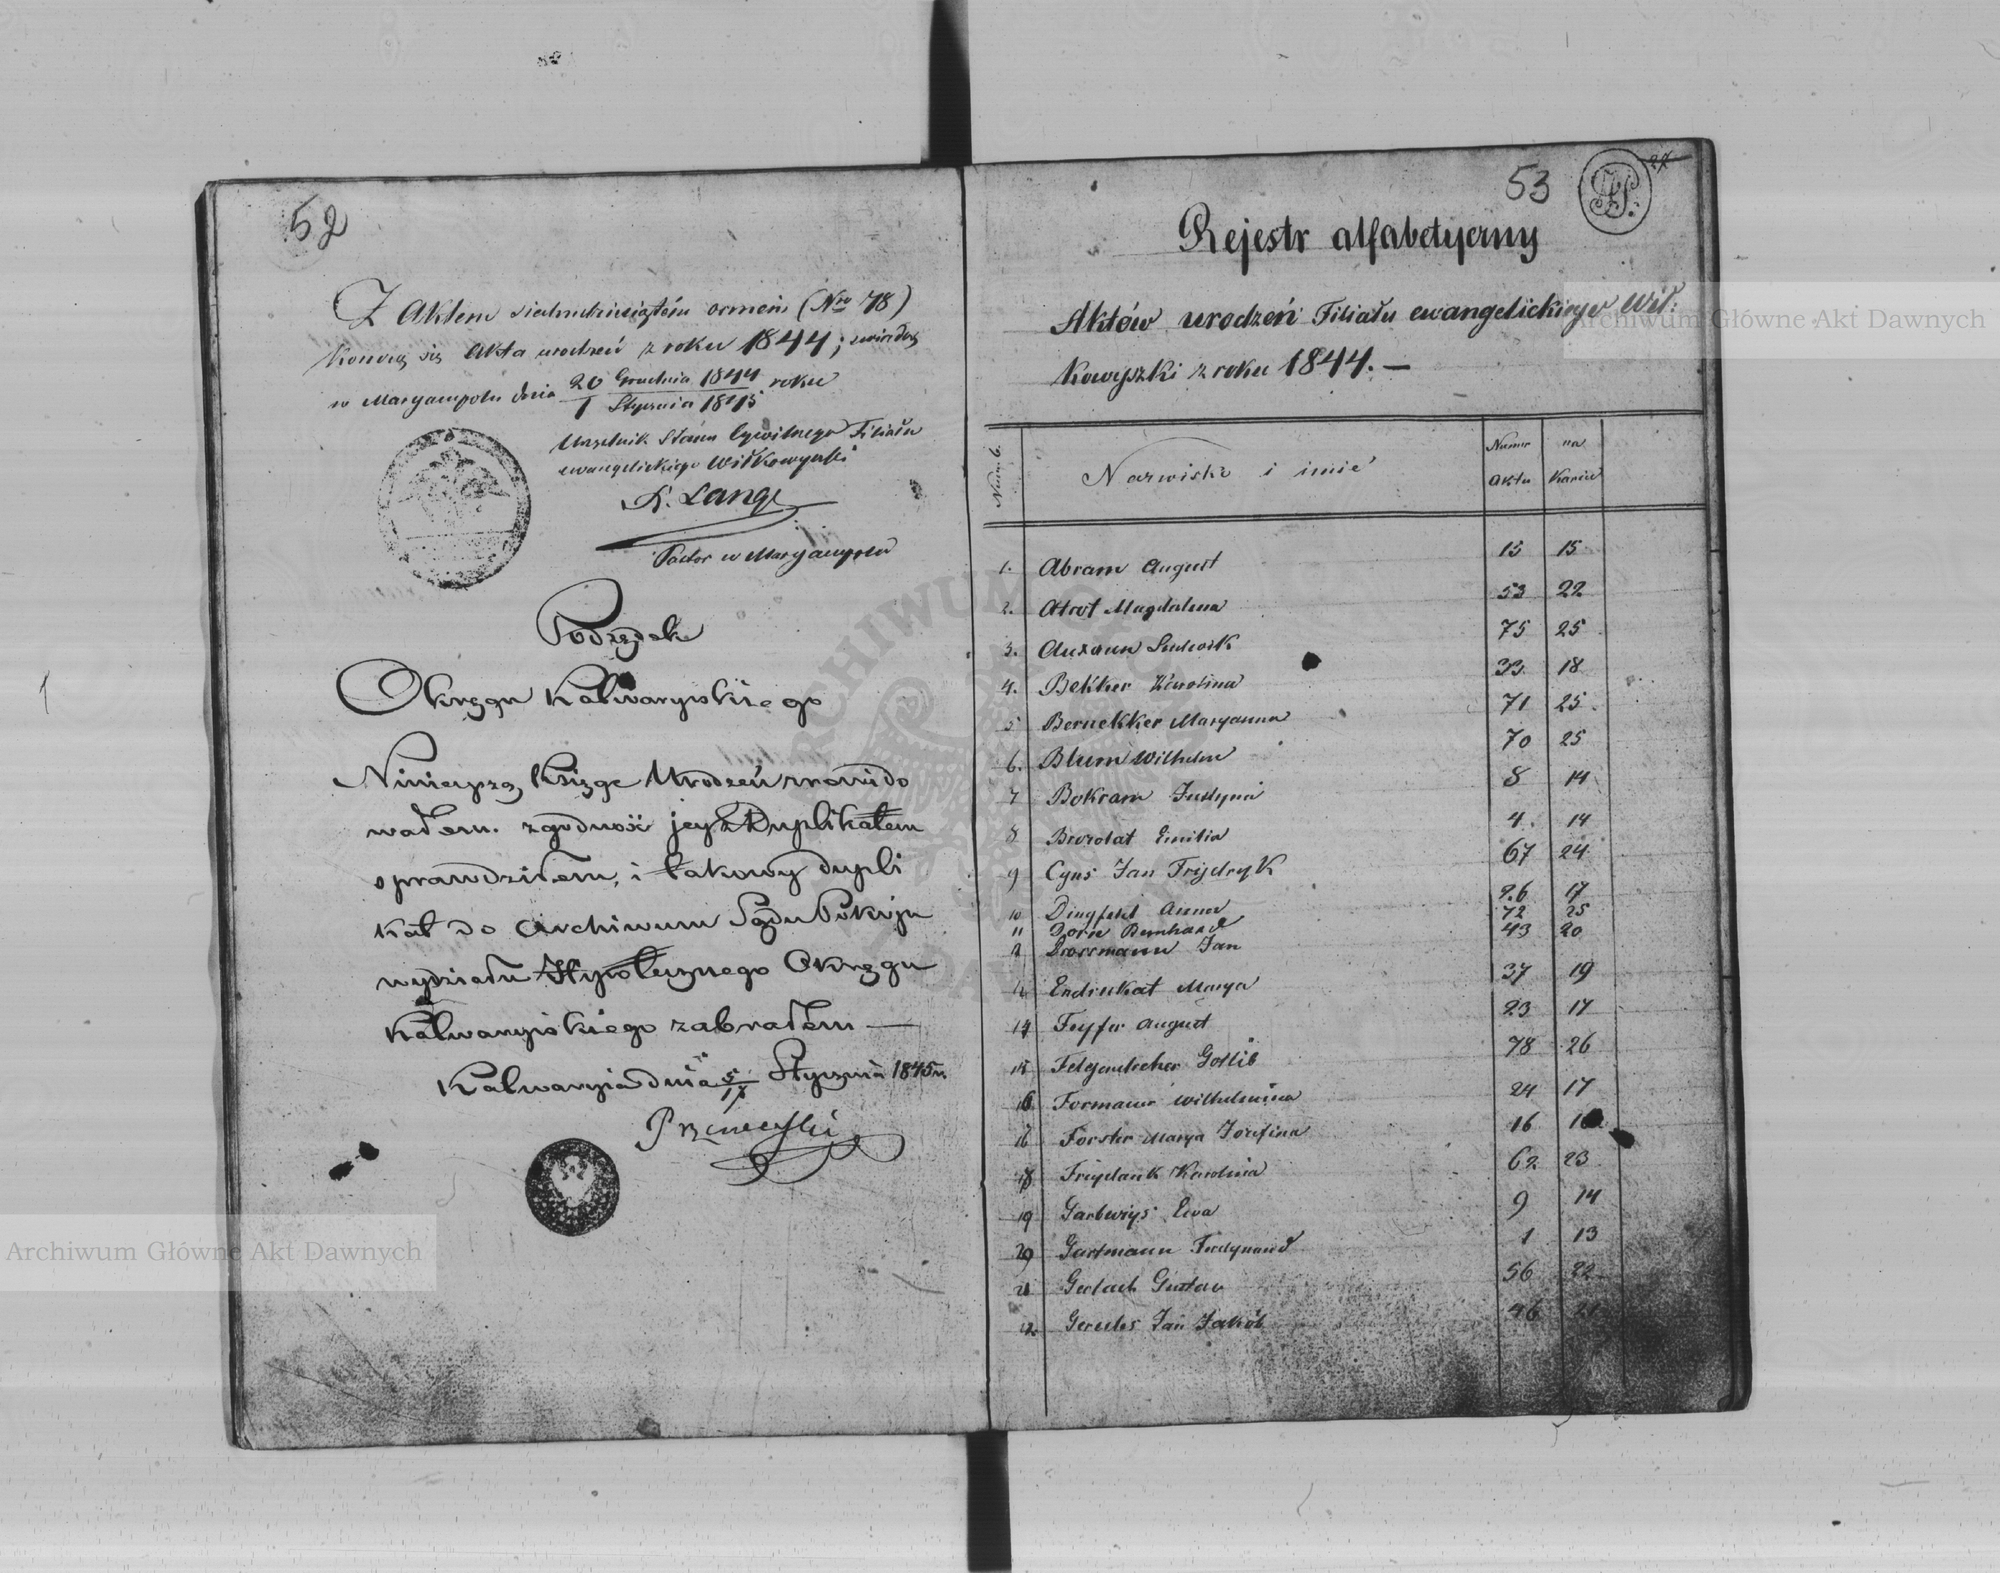 52
Z Aktem siedmdziesiątém osmém (Nro 78)
kończą się Akta urodzeń z roku 1844; świadczę
w Maryampolu dnia 20 Grudnia 1844 / 1 Stycznia 1845 roku
Urzędnik Stanu Cywilnego Filiału
ewangelickiego Wiłkowyszki
K. Lange
Pastor w Maryampolu
Podsędek
Okręgu Kalwaryiskiego
Ninieyszą Księgę Urodzeń zrewido
wałem. zgodność jey z Duplikatem
sprawdziłem, i takowy dupli
kat do Archiwum Sądu Pokoju
wydziału Hypotecznego Okręgu
Kalwaryiskiego zabrałem —
Kalwaryia dnia 5/17 Stycznia 1845 r.
53
Rejestr alfabetyczny
Aktów urodzeń Filiału ewangelickiego Wił:
kowyszki z roku 1844. —
Numb. Nazwisko i imie Numer Aktu na Karcie
1. Abram August 15 15
2. Atrot Magdalena 53 22
3. Ludwik 75 25
4. Bekker Karolina 33 18
5 Bernekker Maryanna 71 25
6. Blum Wilhelm 70 25
7 Bokram Justyna 8 14
8 Emilia 4. 14
9 Cyns Jan Frydryk 67 24
10 Anna 26 17
11 Dorn Bernhard 72 25
12 Drossmann Jan 43 20
Endrukat Marya 37 19
14 Feyfer August 23 17
15 Felgendreher Gotlib 78 26
16 Formann Wilhelmina 24 17
16 Förster Marya Jozefina 16 16
18 Freydank Karolina 62 23
19 Garbwiys Ewa 9 14
20 Gartmann Ferdynand 1 13
21 Gerlach Gustav 56 22
22. Jan Jakób 46 21
Archiwum Główne Akt Dawnych
Archiwum Główne Akt Dawnych